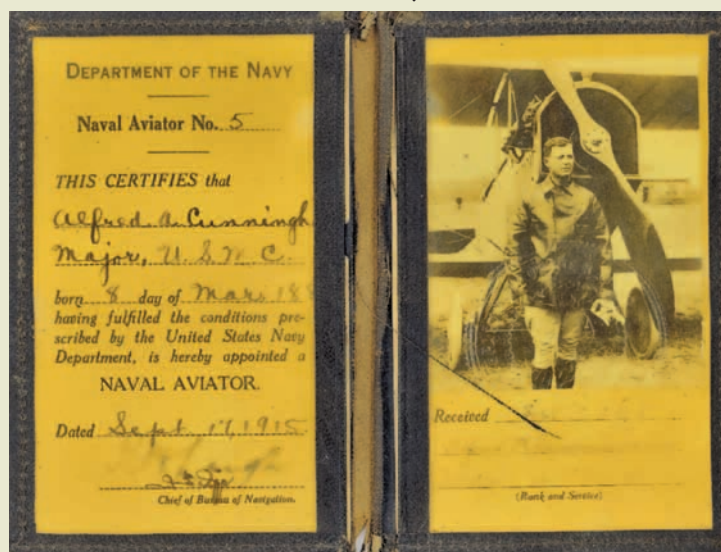 DEPARTMENT OF THE NAVY
Naval Aviator No. 5
THIS CERTIFIES that
Alfred. A. Cunningh
Major, U.S.M.C.
born 8 day of Mar. 188
having fulfilled the conditions pre-
scribed by the United States Navy
Department, is hereby appointed a
NAVAL AVIATOR.
Dated Sept. 17, 1915
Chief of Bureau of Navigation.
Received
(Rank and Service)